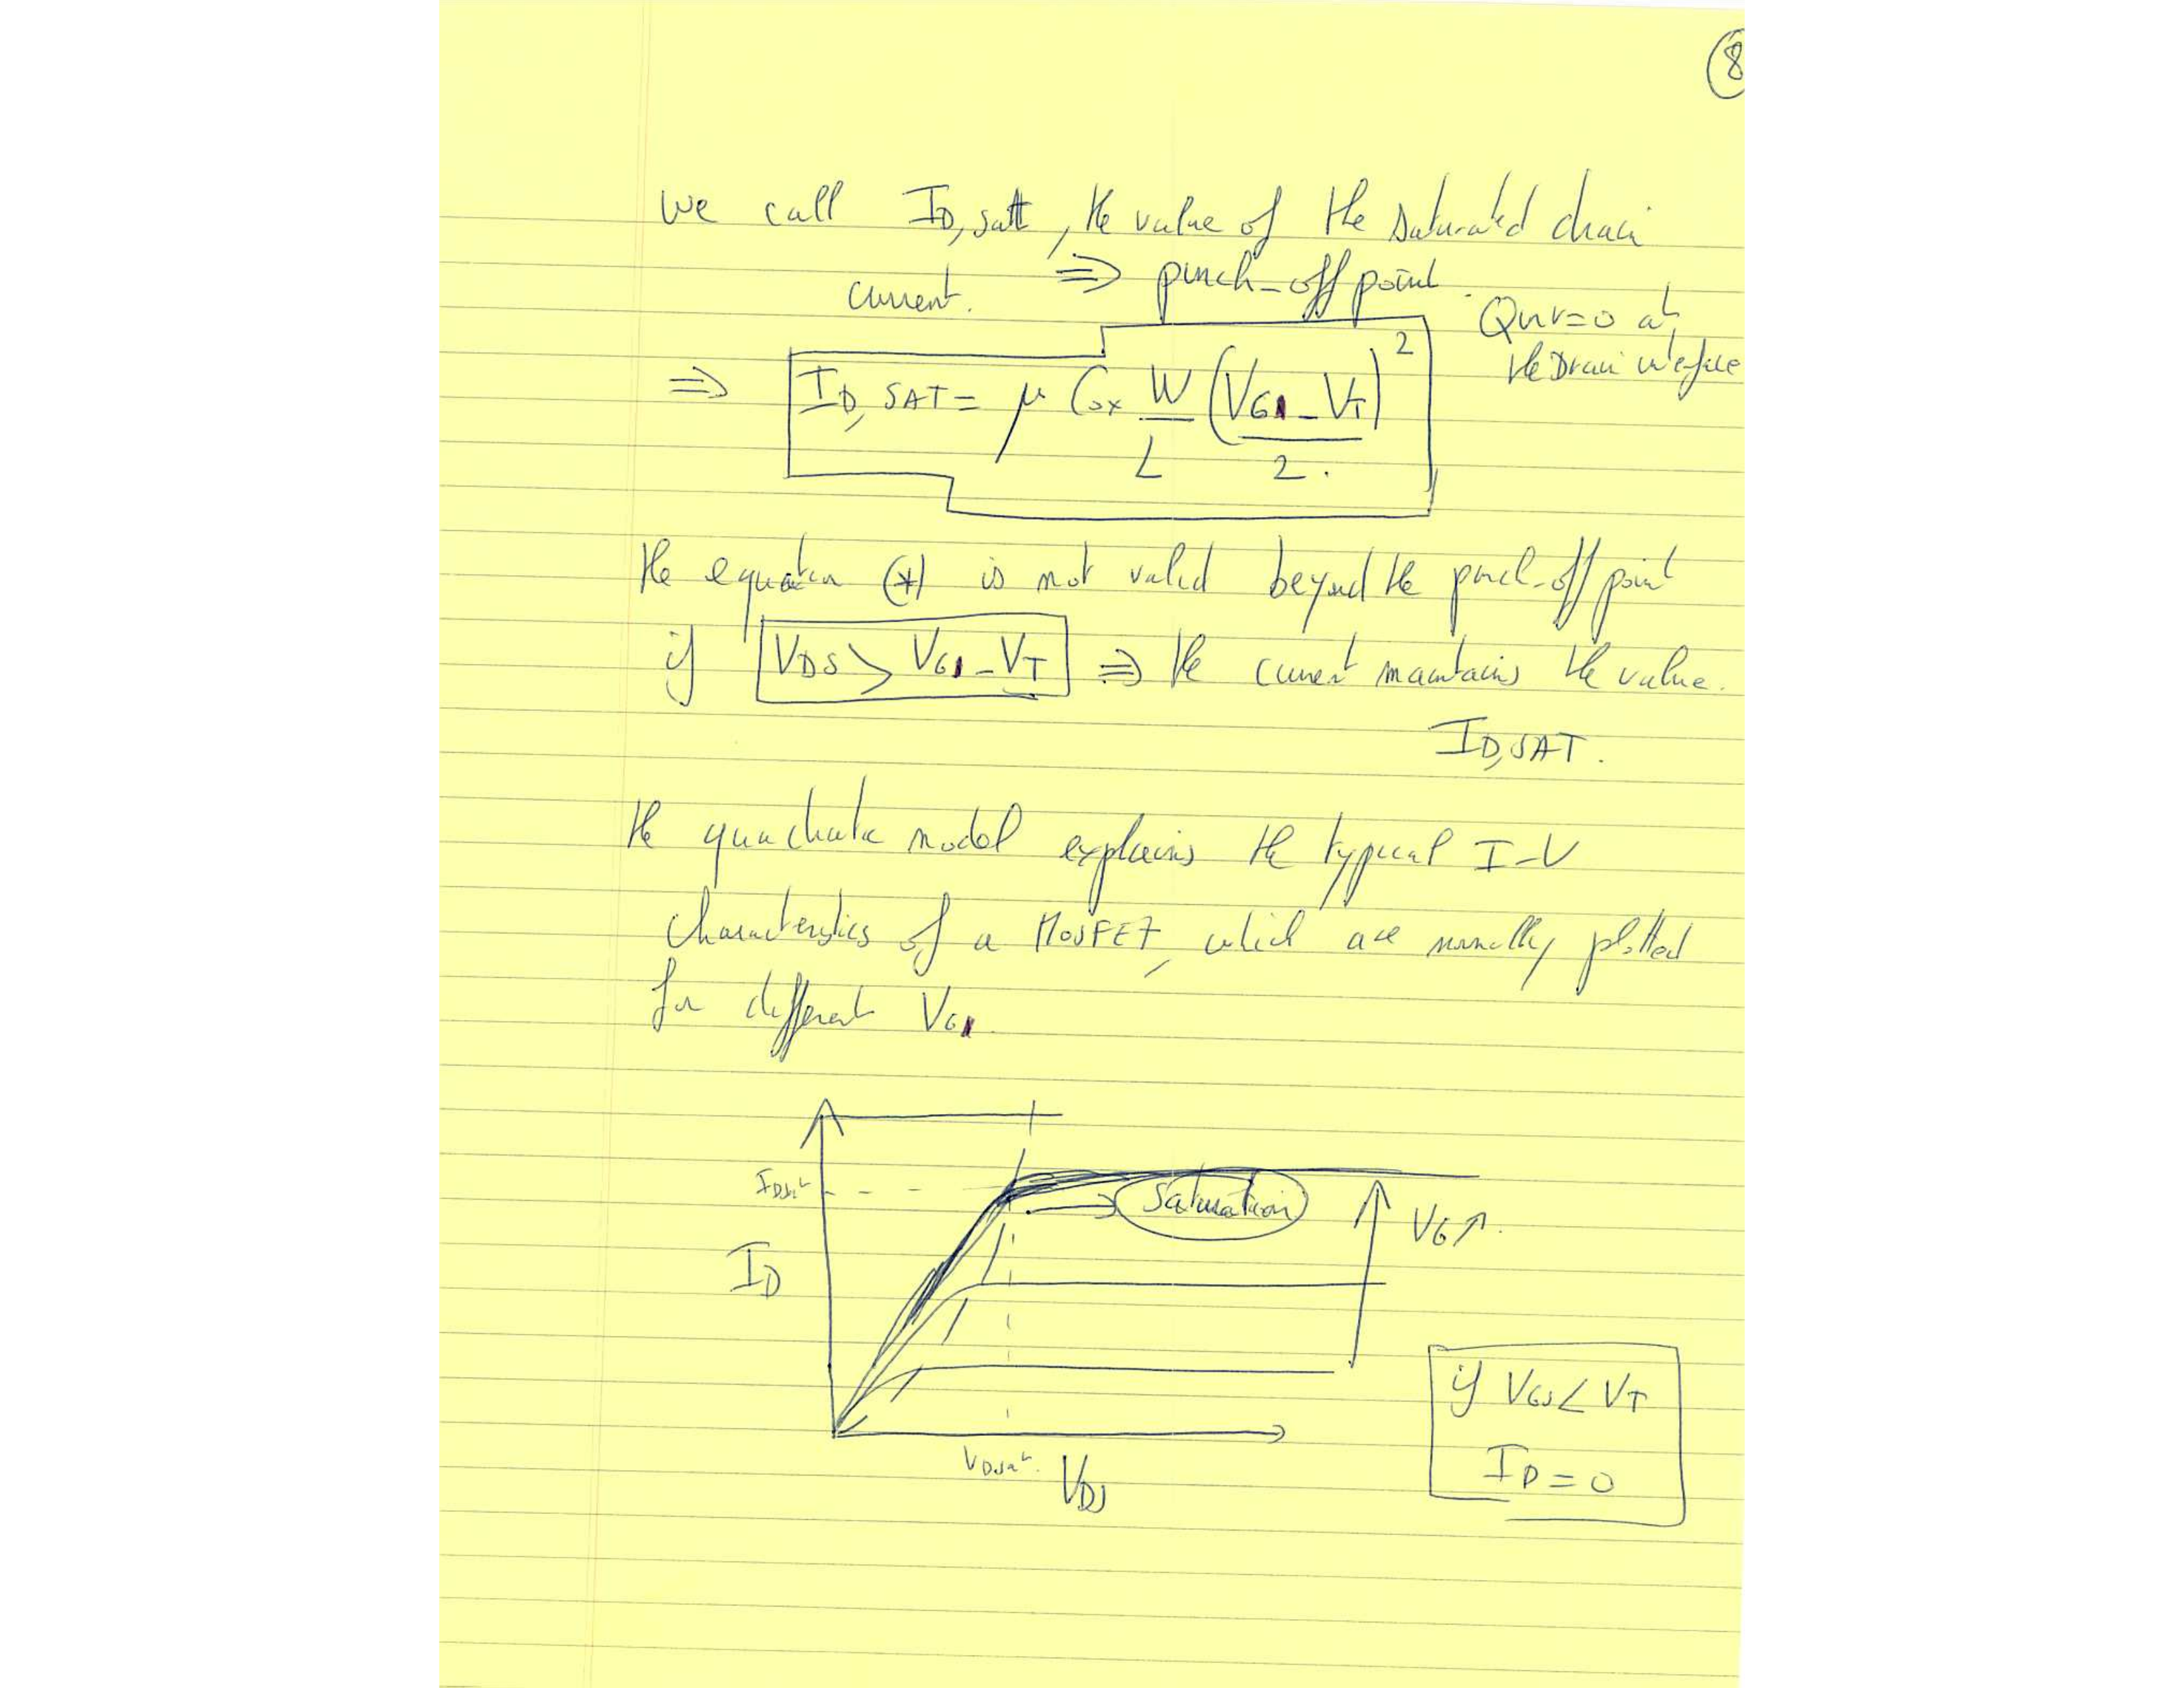 8
we call ID,satt, the value of the saturated drain
current. ⇒ pinch-off point.
Qinv=0 at
the Drain interface
⇒ ID,SAT = μ Cox W/L (VG - VT)²/2.
the equation (*) is not valid beyond the pinch-off point
if VDS > VG - VT ⇒ the current maintains the value.
ID,SAT.
the quadratic model explains the typical I-V
characteristics of a MOSFET, which are normally plotted
for different VG.
IDsat
saturation
VG↑.
ID
if VGS < VT
ID = 0
VDsat.
VDS